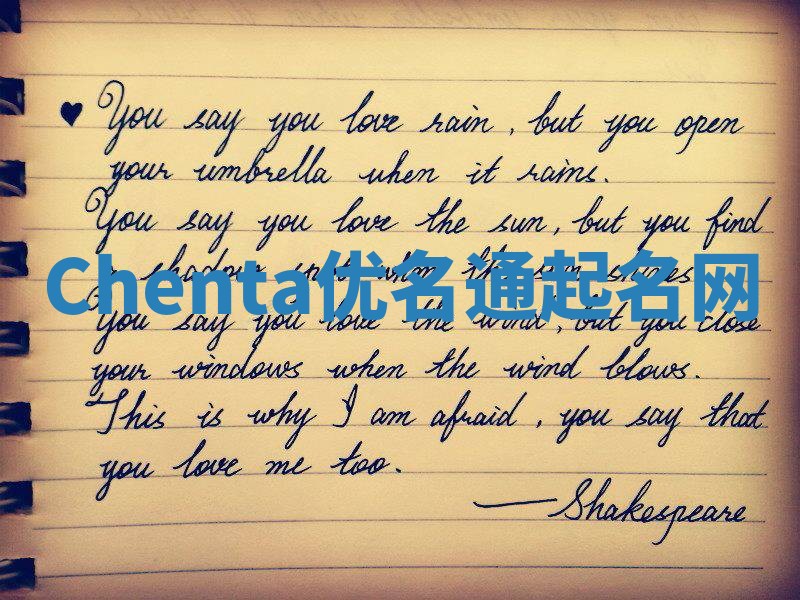 ♥ You say you love rain, but you open
your umbrella when it rains.
You say you love the sun, but you find
a shadow spot when the sun shines
Chenta优名通起名网
You say you love the wind, but you close
your windows when the wind blows.
This is why I am afraid, you say that
you love me too.
— Shakespeare